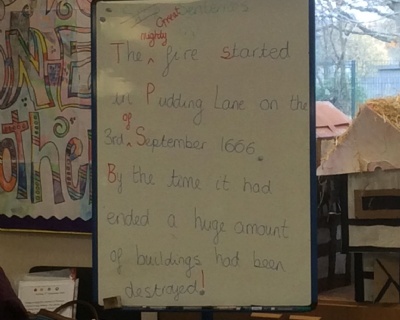 sentences
Great
mighty
The ‸ fire started
in Pudding Lane on the
of
3rd ‸ September 1666.
By the time it had
ended a huge amount
of buildings had been
destroyed!
ONE
other